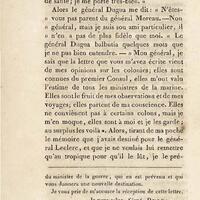 de santé; je me porte très-bien. »
Alors le général Dugua me dit: « N'êtes-
» vous pas parent du général Moreau.—Non
» général, mais je suis son ami particulier, il
» n'en a pas de plus fidèle que moi. » Le
général Dugua balbutia quelques mots que
je ne pus bien entendre. — « Mon général, je
sais que la lettre que vous m'avez écrite vient
de mes opinions sur les colonies, contraires à
celles du premier Consul, et elles m'ont valu
l'inimitié de ses créatures et des ministres.
Elles sont le fruit de mes observations et de mes
voyages; elles partent de ma conscience. Elles
ne conviennent pas à certains colons, mais je
m'en moque, elles sont à moi et je les garde
au surplus les voilà ». Alors, tirant de ma poche
le mémoire que j'avais destiné pour le géné-
ral Leclerc, et que je ne voulais lui remettre
qu'au tropique pour qu'il le lût, je le pré-
du ministre de la guerre, qui en est prévenu et qui
vous donnera une nouvelle destination.
Je vous prie de m'accuser la réception de cette lettre.